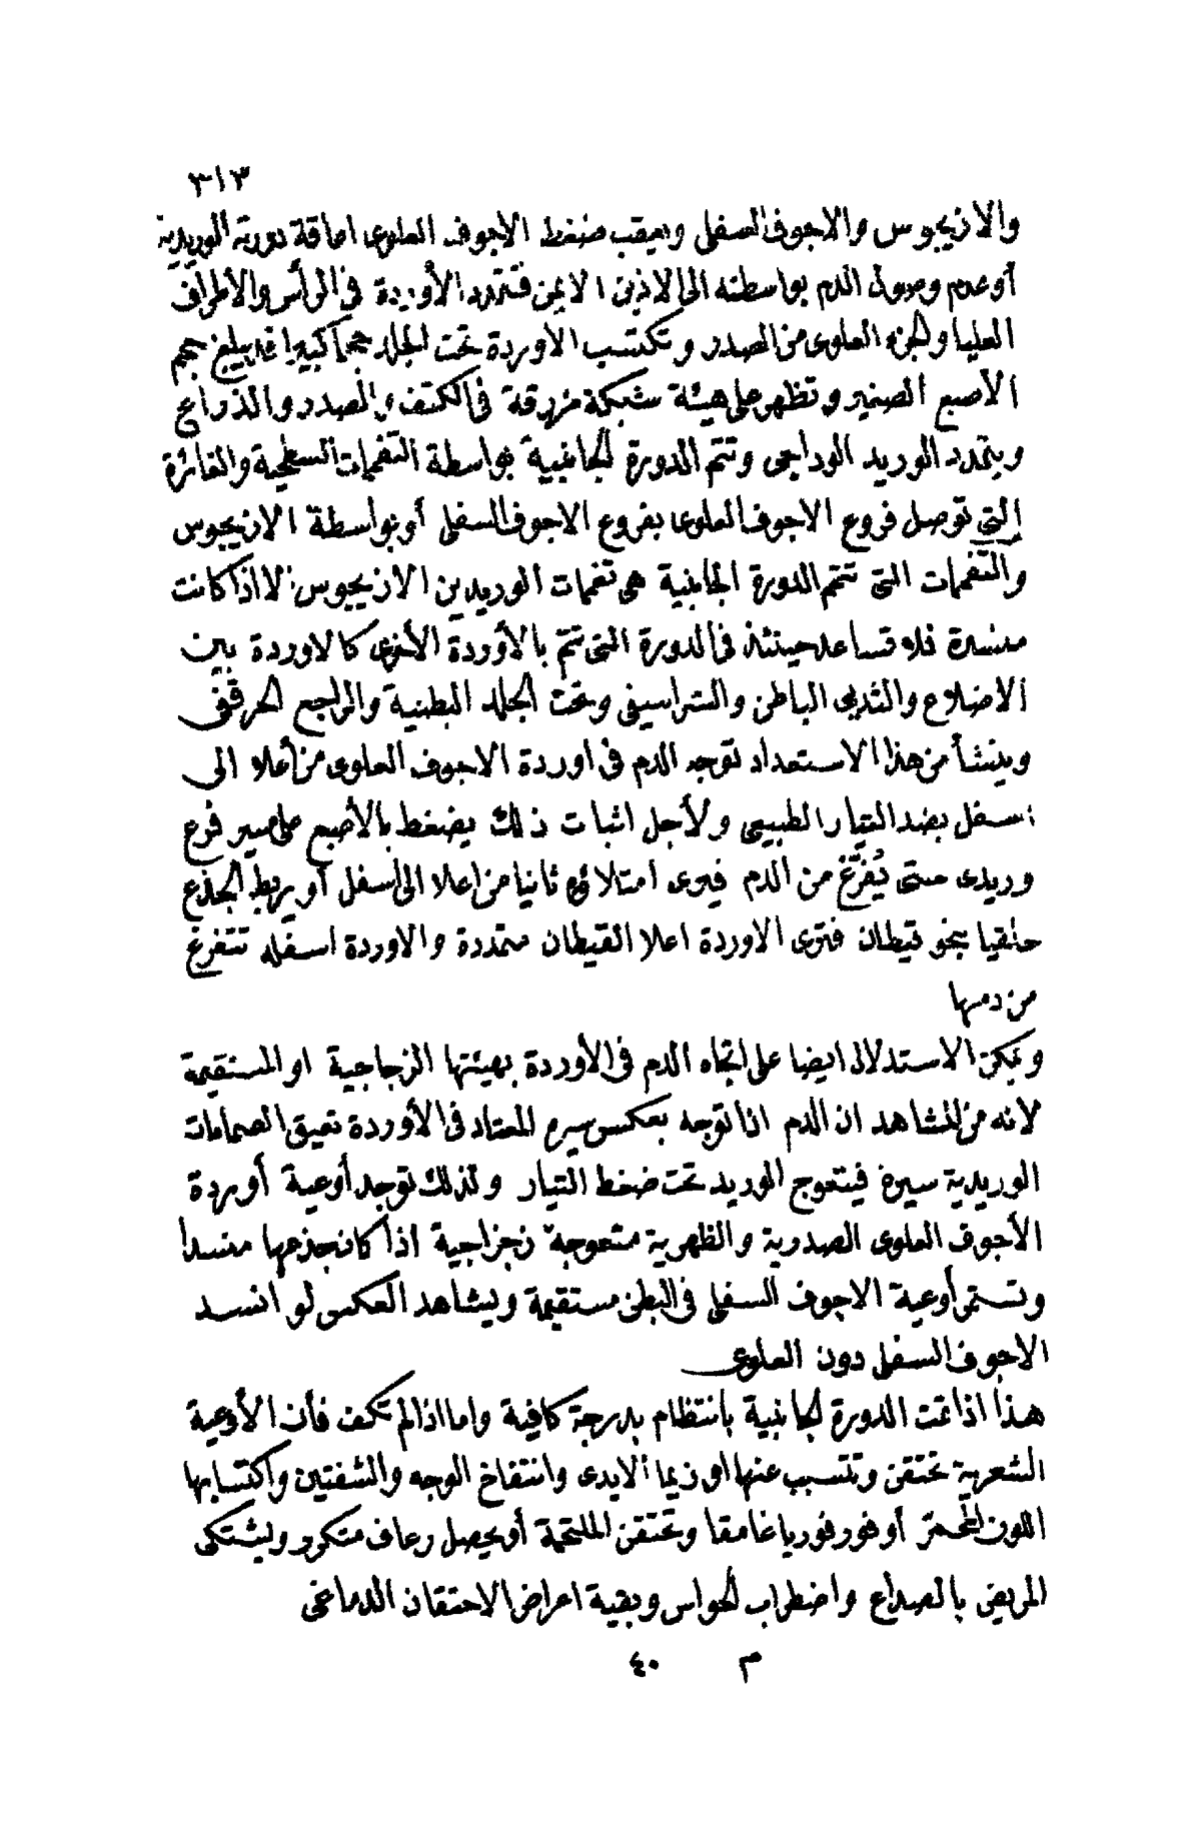 ٣١٣
والازيجوس والاجوف السفلى ويعقب ضغط الاجوف العلوى اعاقة دورته الوريدية
أو عدم وصول الدم بواسطته الى الاذين الايمن فتتمدد الأوردة فى الرأس والأطراف
العليا والجزء العلوى من الصدر وتكتسب الاوردة تحت الجلد حجما كبيرا قد يبلغ حجم
الأصبع الصغير وتظهر على هيئة شبكة مزرقة فى الكتف والصدر والذراع
ويتمدد الوريد الوداجى وتتم الدورة الجانبية بواسطة التفممات السطحية والغائرة
التى توصل فروع الاجوف العلوى بفروع الاجوف السفلى أو بواسطة الازيجوس
والتفممات التى تتمم الدورة الجانبية هى تفممات الوريدين الازيجوس الا اذا كانت
منسدة فلا تساعد حينئذ فى الدورة التى تتم بالأوردة الأخرى كالاوردة بين
الاضلاع والثديى الباطن والشراسيفى وتحت الجلد البطنية والراجع الحرقفى
وينشأ من هذا الاستعداد توجه الدم فى اوردة الاجوف العلوى من أعلا الى
اسفل بضد التيار الطبيعى ولأجل اثبات ذلك يضغط بالأصبع على سير فرع
وريدى حتى يُفرّغ من الدم فيرى امتلاؤه ثانيا من اعلا الى أسفل أو يربط الجذع
حلقيا بنحو قيطان فترى الاوردة اعلا القيطان متمددة والاوردة اسفله تتفرغ
من دمها
ويمكن الاستدلال ايضا على اتجاه الدم فى الأوردة بهيئتها الزجاجية او المستقيمة
لانه من المشاهد ان الدم اذا توجه بعكس سيره المعتاد فى الأوردة تعيق الصمامات
الوريدية سيره فيتعوج الوريد تحت ضغط التيار ولذلك توجد أوعية أوردة
الأجوف العلوى الصدرية والظهرية متعوجة زجزاجية اذا كان جذعها منسدا
وتستمر أوعية الاجوف السفلى فى البطن مستقيمة ويشاهد العكس لو انسد
الاجوف السفلى دون العلوى
هذا اذا تمت الدورة الجانبية بانتظام بدرجة كافية واما اذا لم تكف فأن الأوعية
الشعرية تحتقن وتتسبب عنها اوزيما الايدى وانتفاخ الوجه والشفتين واكتسابها
اللون المحمرّ أو فورفوريا غامقا وتحتقن الملتحمة أو يحصل رعاف متكرر ويشتكى
المريض بالصداع واضطراب الحواس وبقية اعراض الاحتقان الدماغى
م ٤٠